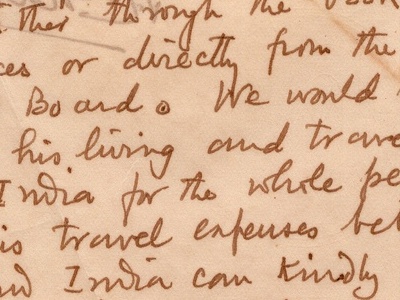 ther through the
ces or directly from the
Board. We would
his living and trave
India for the whole pe
is travel expenses bet
nd India can kindly